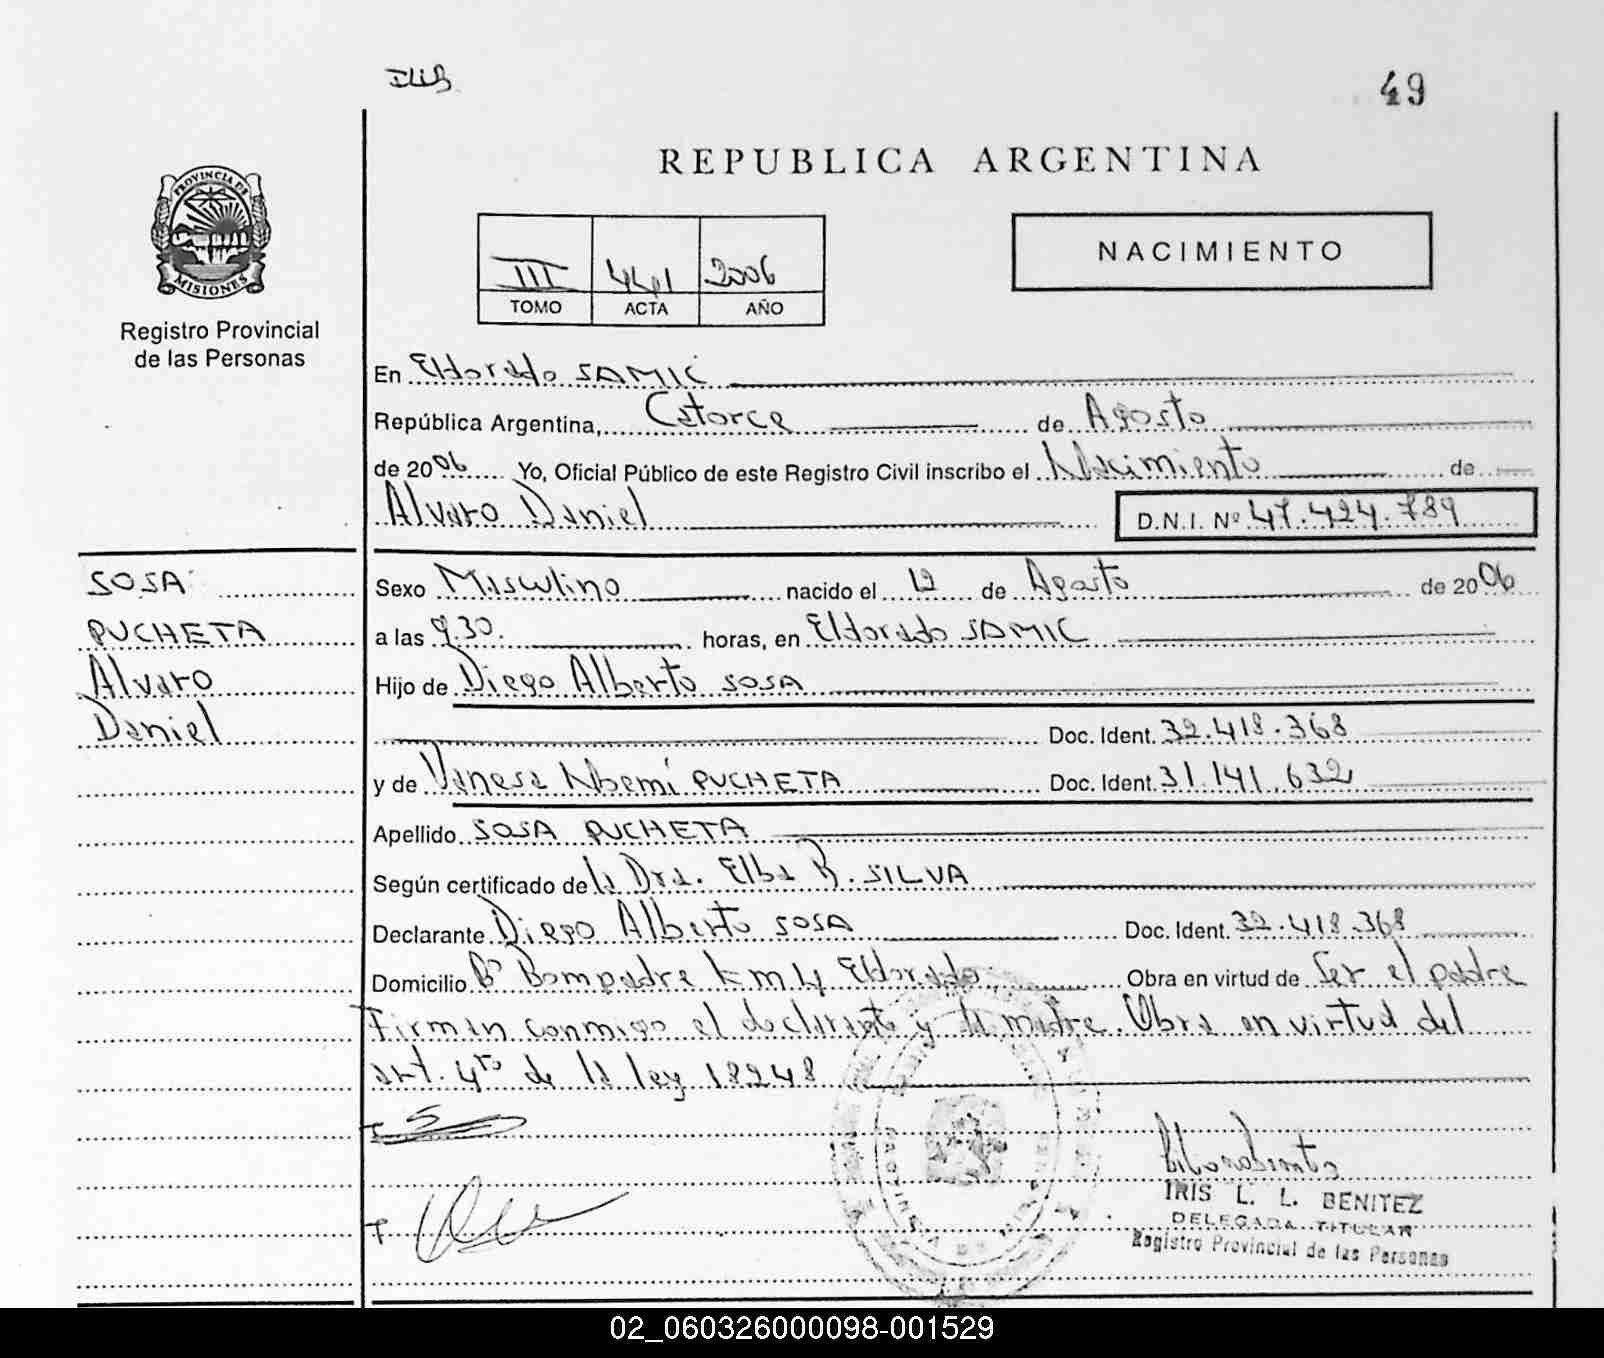 49
REPUBLICA ARGENTINA
PROVINCIA DE
MISIONES
Registro Provincial
de las Personas
III 441 2006
TOMO ACTA AÑO
NACIMIENTO
En Eldorado SAMIC
República Argentina, Catorce de Agosto
de 2006 Yo, Oficial Público de este Registro Civil inscribo el Nacimiento de
Alvaro Daniel D.N.I. Nº 47.424.789
SOSA
PUCHETA
Alvaro
Daniel
Sexo Masculino nacido el 12 de Agosto de 2006
a las 9.30. horas, en Eldorado SAMIC
Hijo de Diego Alberto SOSA
Doc. Ident. 32.418.368
y de Vanesa Noemí PUCHETA Doc. Ident. 31.141.632
Apellido SOSA PUCHETA
Según certificado de la Dra. Elba R. SILVA
Declarante Diego Alberto SOSA Doc. Ident. 32.418.368
Domicilio Bº Bompadre km 4 Eldorado Obra en virtud de Ser el padre
Firman conmigo el declarante y la madre. Obra en virtud del
art. 4to de la ley 18248
IRIS L. L. BENITEZ
DELEGADA TITULAR
Registro Provincial de las Personas
02_060326000098-001529